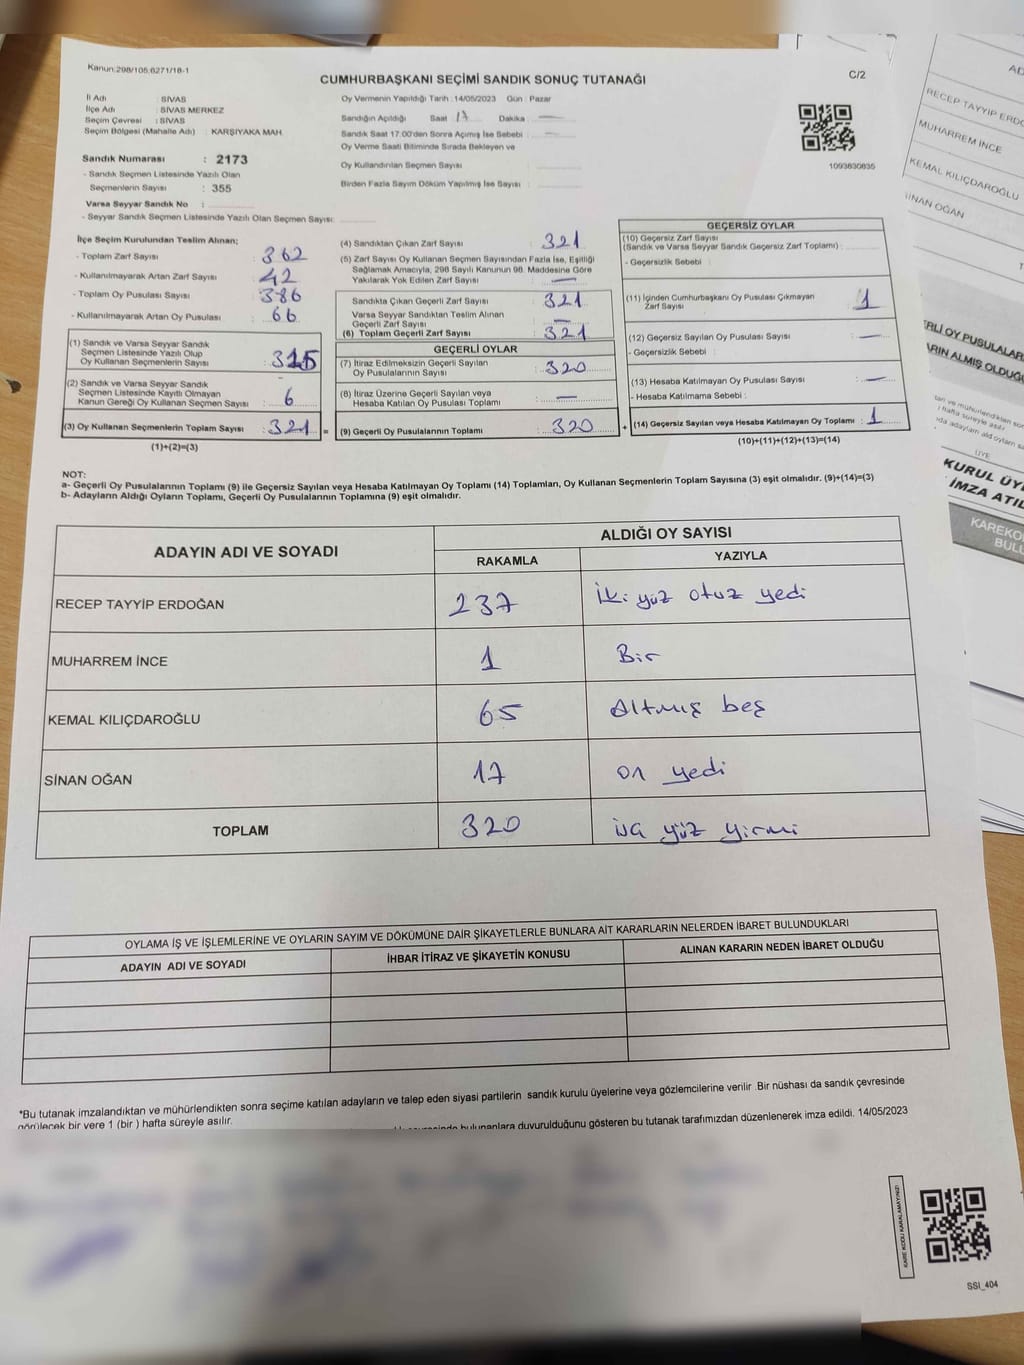 Kanun:298/105,6271/18-1
CUMHURBAŞKANI SEÇİMİ SANDIK SONUÇ TUTANAĞI
C/2
İl Adı : SİVAS
İlçe Adı : SİVAS MERKEZ
Seçim Çevresi : SİVAS
Seçim Bölgesi (Mahalle Adı) : KARŞIYAKA MAH.
Oy Vermenin Yapıldığı Tarih : 14/05/2023 Gün : Pazar
Sandığın Açıldığı Saat 17 Dakika : —
Sandık Saat 17.00'den Sonra Açılmış İse Sebebi : —
Oy Verme Saati Bitiminde Sırada Bekleyen ve
Oy Kullandırılan Seçmen Sayısı :
Birden Fazla Sayım Döküm Yapılmış İse Sayısı :
1093830835
Sandık Numarası : 2173
- Sandık Seçmen Listesinde Yazılı Olan
Seçmenlerin Sayısı : 355
Varsa Seyyar Sandık No :
- Seyyar Sandık Seçmen Listesinde Yazılı Olan Seçmen Sayısı:
İlçe Seçim Kurulundan Teslim Alınan;
- Toplam Zarf Sayısı : 362
- Kullanılmayarak Artan Zarf Sayısı : 42
- Toplam Oy Pusulası Sayısı : 386
- Kullanılmayarak Artan Oy Pusulası : 66
(1) Sandık ve Varsa Seyyar Sandık
Seçmen Listesinde Yazılı Olup
Oy Kullanan Seçmenlerin Sayısı : 315
(2) Sandık ve Varsa Seyyar Sandık
Seçmen Listesinde Kayıtlı Olmayan
Kanun Gereği Oy Kullanan Seçmen Sayısı : 6
(3) Oy Kullanan Seçmenlerin Toplam Sayısı : 321 =
(1)+(2)=(3)
(4) Sandıktan Çıkan Zarf Sayısı : 321
(5) Zarf Sayısı Oy Kullanan Seçmen Sayısından Fazla İse, Eşitliği
Sağlamak Amacıyla, 298 Sayılı Kanunun 98. Maddesine Göre
Yakılarak Yok Edilen Zarf Sayısı : —
Sandıkta Çıkan Geçerli Zarf Sayısı : 321
Varsa Seyyar Sandıktan Teslim Alınan
Geçerli Zarf Sayısı : —
(6) Toplam Geçerli Zarf Sayısı : 321
GEÇERLİ OYLAR
(7) İtiraz Edilmeksizin Geçerli Sayılan
Oy Pusulalarının Sayısı : 320
(8) İtiraz Üzerine Geçerli Sayılan veya
Hesaba Katılan Oy Pusulası Toplamı : —
(9) Geçerli Oy Pusulalarının Toplamı : 320 +
GEÇERSİZ OYLAR
(10) Geçersiz Zarf Sayısı
(Sandık ve Varsa Seyyar Sandık Geçersiz Zarf Toplamı) :
- Geçersizlik Sebebi :
(11) İçinden Cumhurbaşkanı Oy Pusulası Çıkmayan
Zarf Sayısı : 1
(12) Geçersiz Sayılan Oy Pusulası Sayısı : —
- Geçersizlik Sebebi :
(13) Hesaba Katılmayan Oy Pusulası Sayısı : —
- Hesaba Katılmama Sebebi :
(14) Geçersiz Sayılan veya Hesaba Katılmayan Oy Toplamı : 1
(10)+(11)+(12)+(13)=(14)
NOT:
a- Geçerli Oy Pusulalarının Toplamı (9) ile Geçersiz Sayılan veya Hesaba Katılmayan Oy Toplamı (14) Toplamları, Oy Kullanan Seçmenlerin Toplam Sayısına (3) eşit olmalıdır. (9)+(14)=(3)
b- Adayların Aldığı Oyların Toplamı, Geçerli Oy Pusulalarının Toplamına (9) eşit olmalıdır.
ADAYIN ADI VE SOYADI
ALDIĞI OY SAYISI
RAKAMLA YAZIYLA
RECEP TAYYİP ERDOĞAN 237 İki yüz otuz yedi
MUHARREM İNCE 1 Bir
KEMAL KILIÇDAROĞLU 65 Altmış beş
SİNAN OĞAN 17 on yedi
TOPLAM 320 üç yüz yirmi
OYLAMA İŞ VE İŞLEMLERİNE VE OYLARIN SAYIM VE DÖKÜMÜNE DAİR ŞİKAYETLERLE BUNLARA AİT KARARLARIN NELERDEN İBARET BULUNDUKLARI
ADAYIN ADI VE SOYADI İHBAR İTİRAZ VE ŞİKAYETİN KONUSU ALINAN KARARIN NEDEN İBARET OLDUĞU
*Bu tutanak imzalandıktan ve mühürlendikten sonra seçime katılan adayların ve talep eden siyasi partilerin sandık kurulu üyelerine veya gözlemcilerine verilir. Bir nüshası da sandık çevresinde
görülecek bir yere 1 (bir ) hafta süreyle asılır.
bulunanlara duyurulduğunu gösteren bu tutanak tarafımızdan düzenlenerek imza edildi. 14/05/2023
KARE KODU KARALAMAYINIZ!
SSI_404
RECEP TAYYİP ERDO
MUHARREM İNCE
KEMAL KILIÇDAROĞLU
SİNAN OĞAN
ERLİ OY PUSULALAR
ARIN ALMIŞ OLDUĞU
ÜYE
KURUL ÜY
İMZA ATIL
KAREKO
BUL